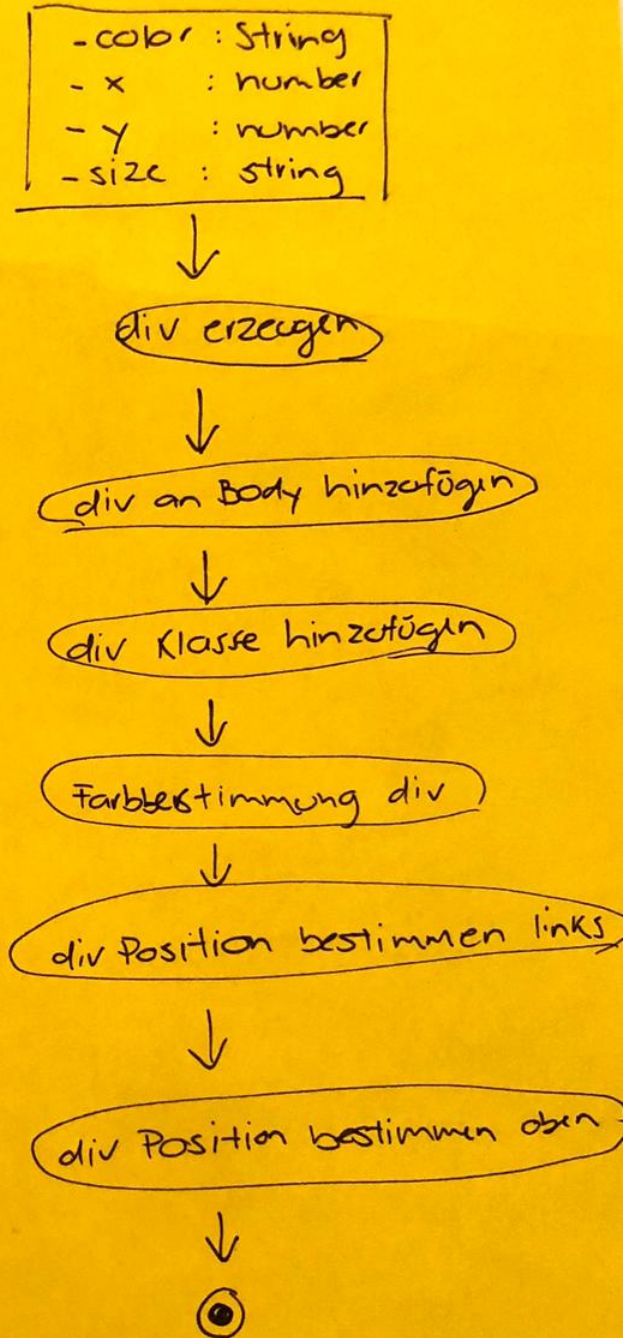 - color : String
- x : number
- y : number
- size : string
div erzeugen
div an Body hinzufügen
div Klasse hinzufügen
Farbbestimmung div
div Position bestimmen links
div Position bestimmen oben